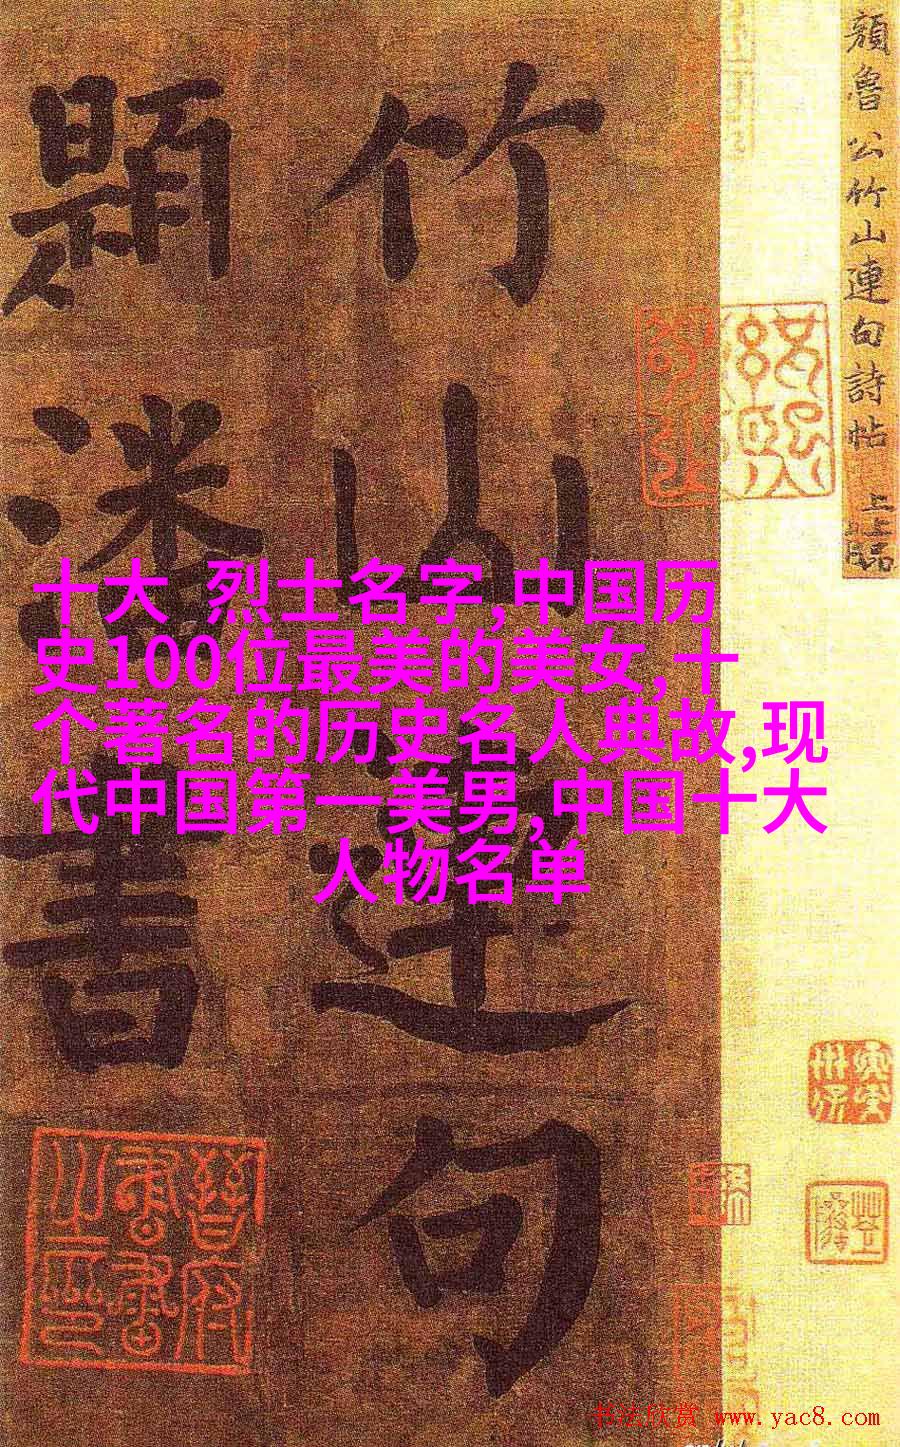 顏魯公竹山連句詩帖 上上品
竹山連句
題潘書
十大 烈士名字,中国历
史100位最美的美女,十
个著名的历史名人典故,现
代中国第一美男,中国十大
人物名单
晉府
書畫
之印
书法欣赏 www.yac8.com